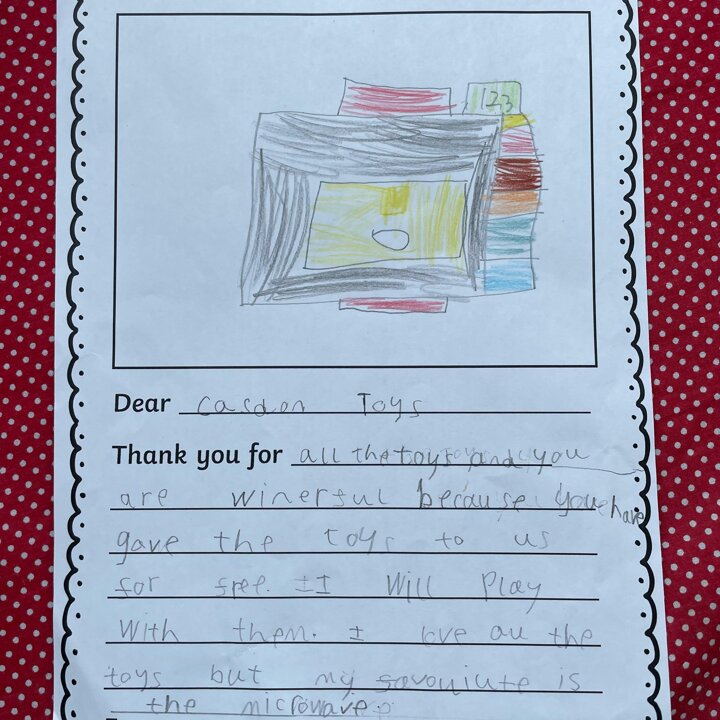 123
Dear Casdon Toys
Thank you for all the toys and you
are winerful because you have
gave the toys to us
for free. I will play
with them. I love all the
toys but my favouriute is
the microwave